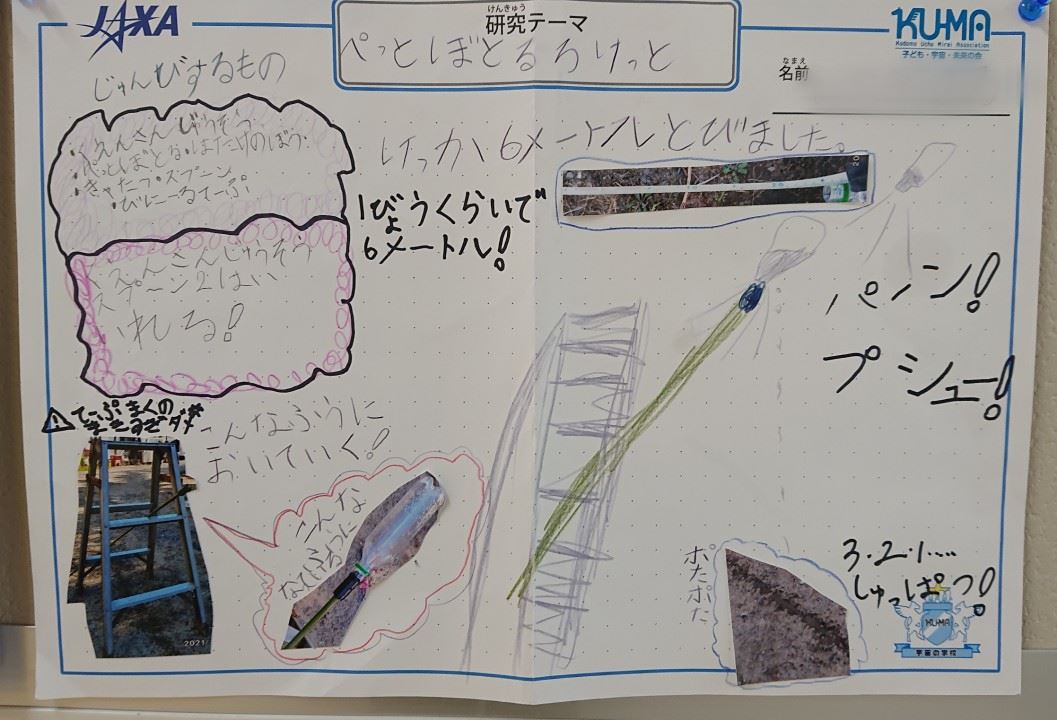 JAXA
けんきゅう
研究テーマ
ぺっとぼとるろけっと
KU-MA
Kodomo Uchu Mirai Association
子ども・宇宙・未来の会
なまえ
名前
じゅんびするもの
・えんさんじゅうそう
・ぺっとぼとる・はたけのぼう
・きゃたつ・スプーン
・びにーるてーぷ
えんさんじゅうそう
スプーン2はい
いれる!
けっか 6メートルとびました。
1びょうくらいで
6メートル!
パァン!
プシュー!
てーぷまくの
まきすぎダメ
こんなふうに
おいていく!
2021
こんな
ふうに
なている
ポたポた
3・2・1・・・・
しゅっぱつ!
KU-MA
宇宙の学校